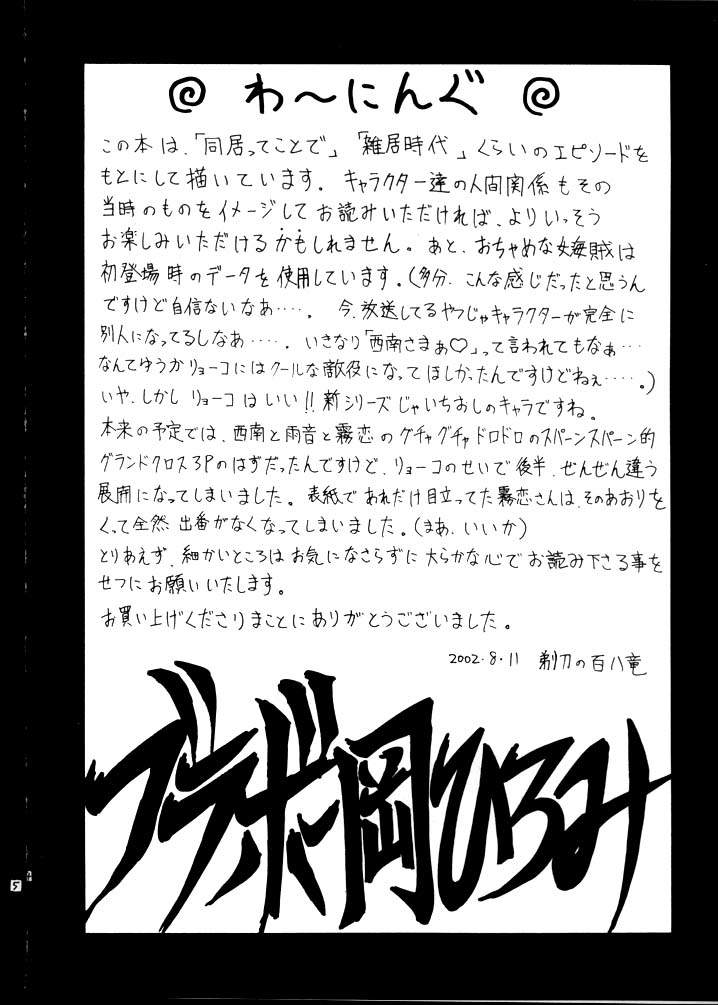 わ〜にんぐ
この本は、「同居ってことで」「雑居時代」くらいのエピソードを
もとにして描いています。キャラクター達の人間関係もその
当時のものをイメージしてお読みいただければ、よりいっそう
お楽しみいただけるかもしれません。あと、おちゃめな女海賊は
初登場時のデータを使用しています。(多分、こんな感じだったと思うん
ですけど自信ないなぁ‥‥。今、放送してるやつじゃキャラクターが完全に
別人になってるしなぁ‥‥。いきなり「西南さまぁ♡」って言われてもなぁ…
なんてゆうかリョーコにはクールな敵役になってほしかったんですけどねぇ‥‥。)
いや、しかしリョーコはいい!!新シリーズじゃいちおしのキャラですね。
本来の予定では、西南と雨音と霧恋のグチャグチャドロドロのスパーンスパーン的
グランドクロス3Pのはずだったんですけど、リョーコのせいで後半、ぜんぜん違う
展開になってしまいました。表紙であれだけ目立ってた霧恋さんは、そのあおりを
くって全然出番がなくなってしまいました。(まあ、いいか)
とりあえず、細かいところはお気になさらずに大らかな心でお読み下さる事を
せつにお願いいたします。
お買い上げくださりまことにありがとうございました。
2002.8.11 剃刀の百八竜
ブラボー岡ひろみ
5